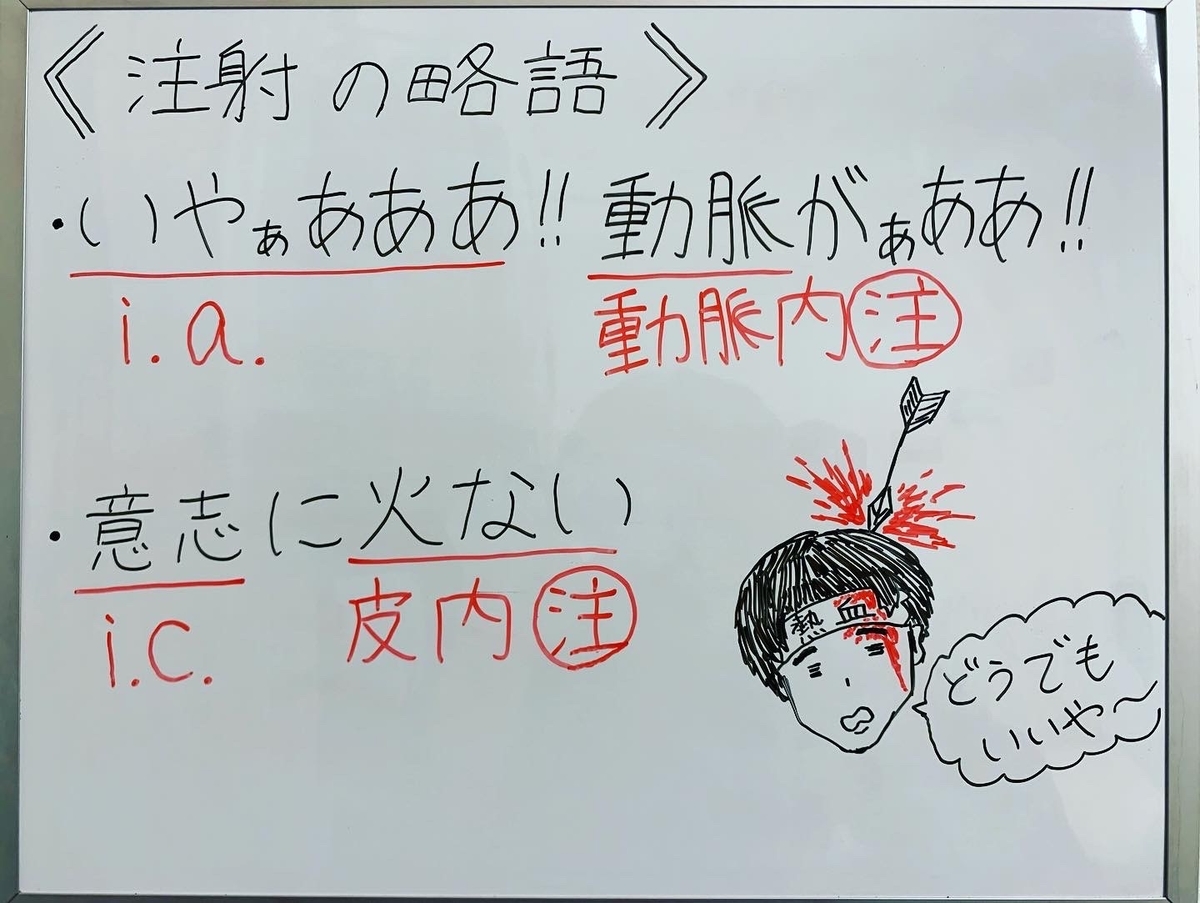 《注射の略語》
・いやぁあああ!! 動脈がぁああ!!
i.a. 動脈内注
・意志に火ない
i.c. 皮内注
熱血
どうでも
いいや〜